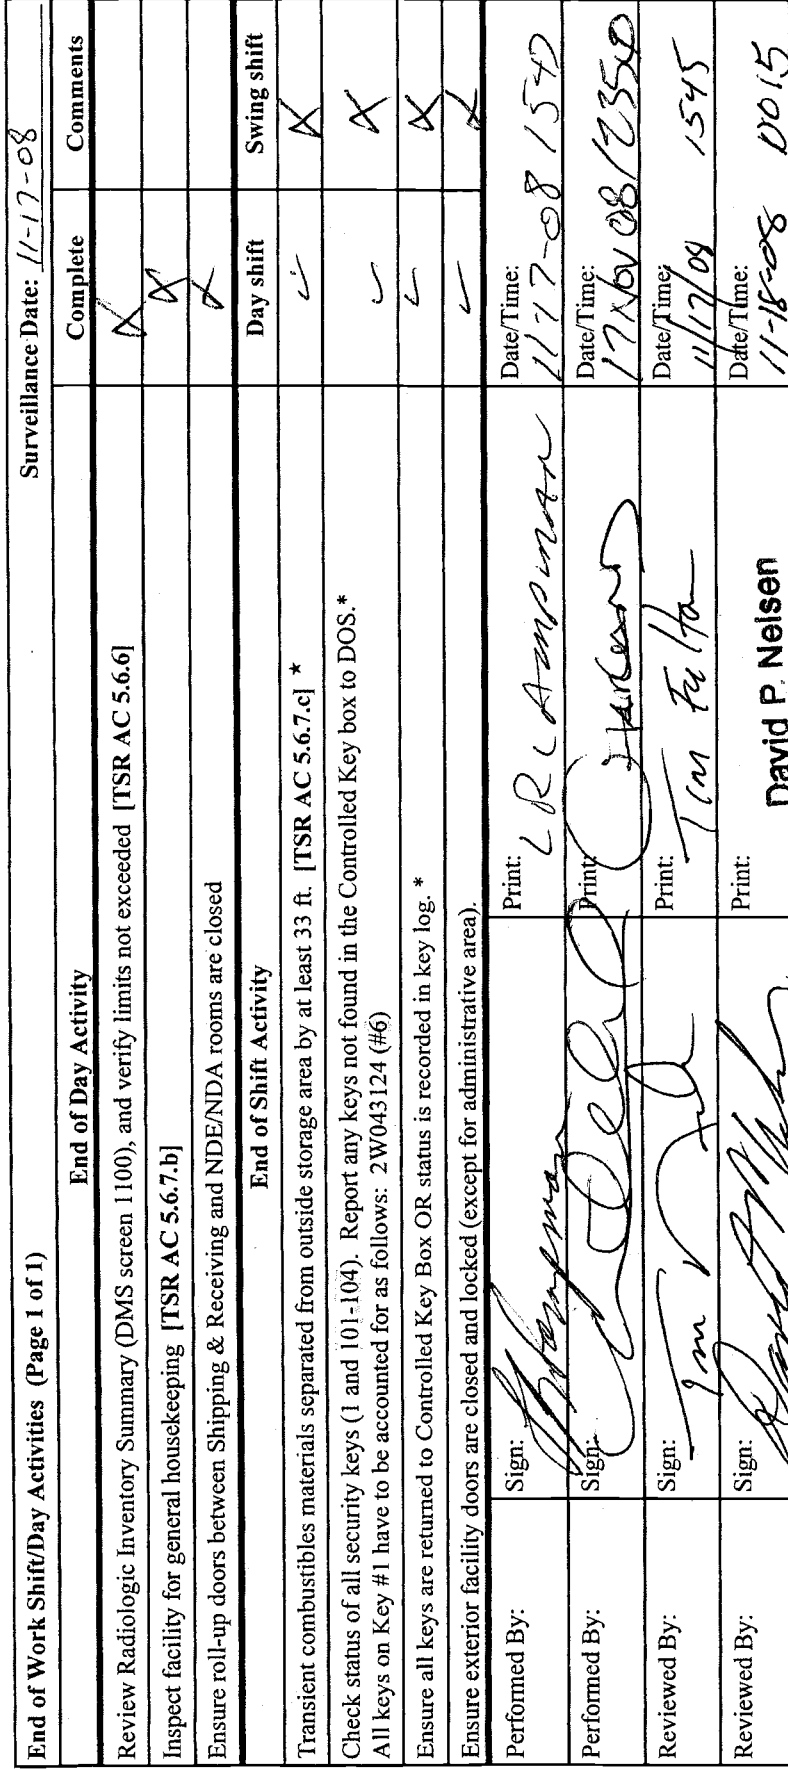 End of Work Shift/Day Activities (Page 1 of 1) Surveillance Date: 11-17-08
End of Day Activity Complete Comments
Review Radiologic Inventory Summary (DMS screen 1100), and verify limits not exceeded [TSR AC 5.6.6] X
Inspect facility for general housekeeping [TSR AC 5.6.7.b] X
Ensure roll-up doors between Shipping & Receiving and NDE/NDA rooms are closed X
End of Shift Activity Day shift Swing shift
Transient combustibles materials separated from outside storage area by at least 33 ft. [TSR AC 5.6.7.c] * ✓ X
Check status of all security keys (1 and 101-104). Report any keys not found in the Controlled Key box to DOS.* ✓ X
All keys on Key #1 have to be accounted for as follows: 2W043124 (#6)
Ensure all keys are returned to Controlled Key Box OR status is recorded in key log. * ✓ X
Ensure exterior facility doors are closed and locked (except for administrative area). ✓ X
Performed By: Sign: Print: Date/Time:
11-17-08 1540
Performed By: Sign: Print: Date/Time:
17 Nov 08/2350
Reviewed By: Sign: Print: Tim Fulton Date/Time:
11/17/08 1545
Reviewed By: Sign: Print: David P. Nelsen Date/Time:
11-18-08 0015